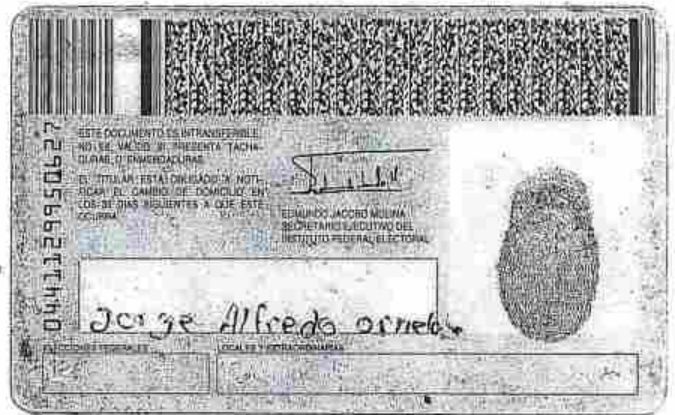 ESTE DOCUMENTO ES INTRANSFERIBLE
NO ES VALIDO SI PRESENTA TACHA-
DURAS O ENMENDADURAS
EL TITULAR ESTA OBLIGADO A NOTI-
FICAR EL CAMBIO DE DOMICILIO EN
LOS 30 DIAS SIGUIENTES A QUE ESTE
OCURRA
EDMUNDO JACOBO MOLINA
SECRETARIO EJECUTIVO DEL
INSTITUTO FEDERAL ELECTORAL
0441129950627
Jorge Alfredo ornelas
ELECCIONES FEDERALES
LOCALES Y EXTRAORDINARIAS